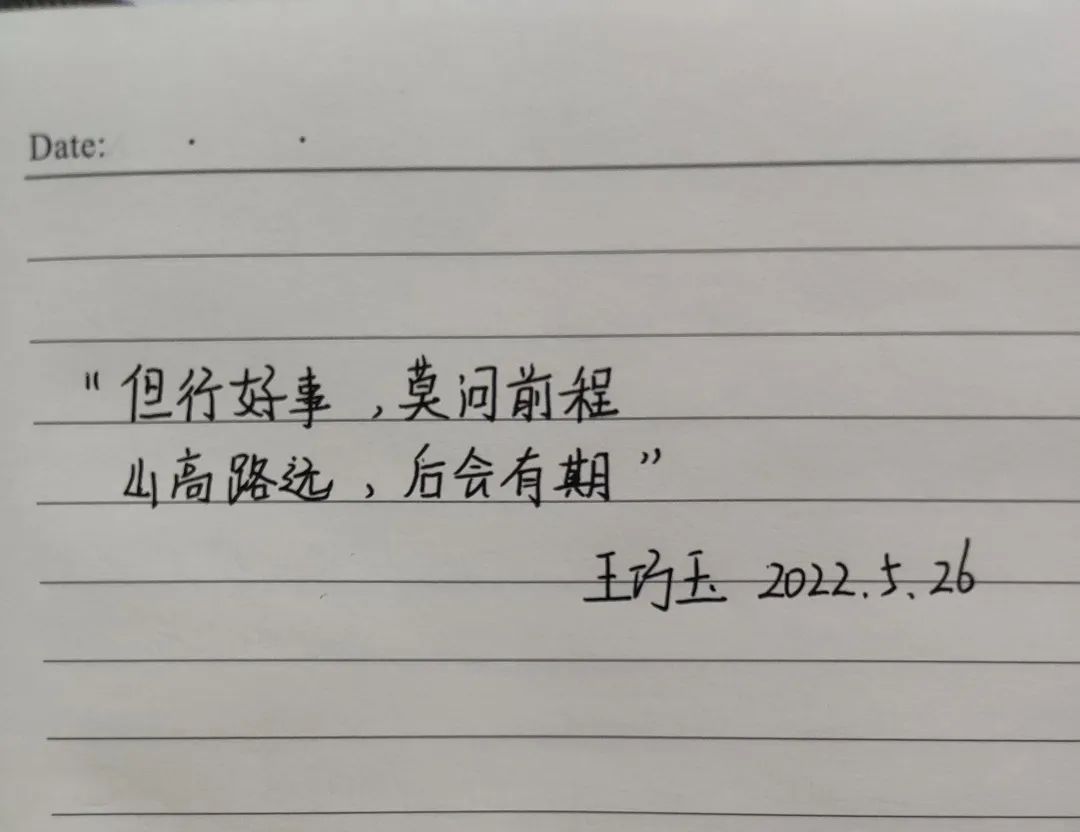 Date: . .
"但行好事,莫问前程
山高路远,后会有期"
王巧玉 2022.5.26